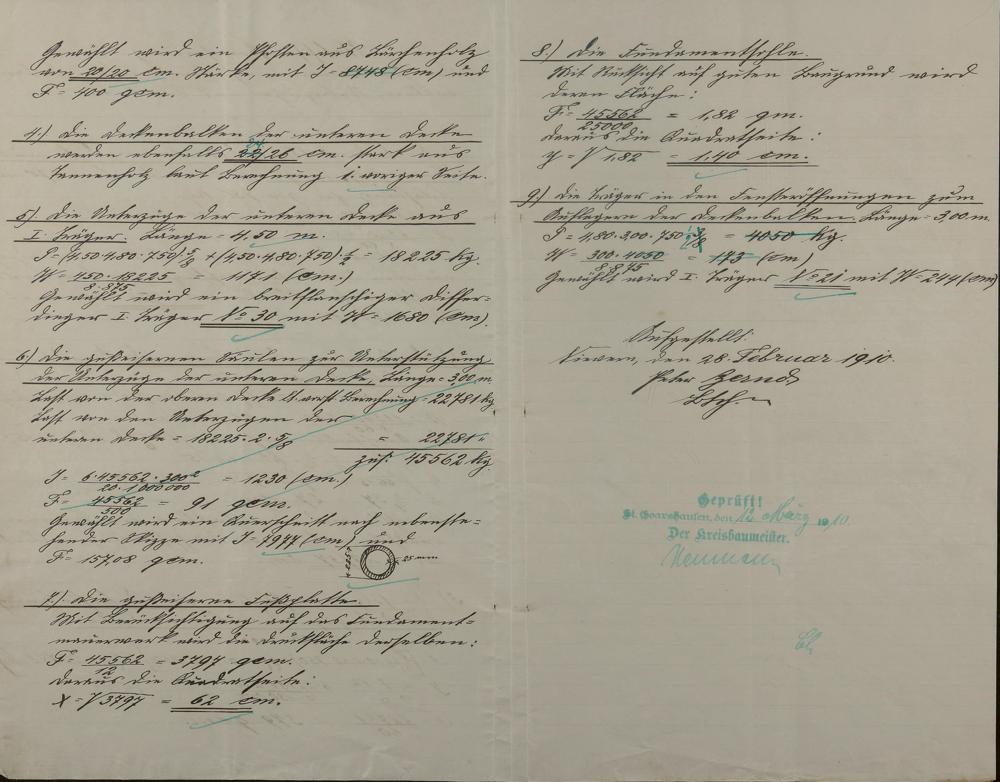 Gewählt wird ein Pfosten aus Lärchenholz
von 20/20 cm. Stärke, mit J = 8748 (cm) und
F = 400 qcm.
4.) Die Deckenbalken der unteren Decke
werden ebenfalls /26 cm. stark aus
Tannenholz laut Berechnung 1. voriger Seite.
5.) Die Unterzüge der unteren Decke aus
I. Träger. Länge = 4,50 m.
P = (4,50·4,80·750) 5/8 + (4,50·4,80·750) ½ = 18225 Kg.
W = 450·18225 / 8·875 = 1171 (cm.)
Gewählt wird ein breitflanschiger Differ-
dinger I. Träger No 30 mit W = 1680 (cm).
6.) Die gußeisernen Säulen zur Unterstützung
der Unterzüge der unteren Decke, Länge = 3,00 m
Last von der oberen Decke lt. Berechnung = 22781 Kg
Last von den Unterzügen der
unteren Decke = 18225·2·5/8 = 22781 "
zus. 45562 Kg
J = 6·45562·300² / 20·1000000 = 1230 (cm.)
F = 45562 / 500 = 91 qcm.
Gewählt wird ein Querschnitt nach nebenste-
hender Skizze mit J = 7977 (cm) und
F = 157,08 qcm.
25 mm
7.) Die gußeiserne Fußplatte.
Mit Berücksichtigung auf das Fundament-
mauerwerk wird die Druckfläche derselben:
F = 45562 / 12 = 3797 qcm.
daraus die Quadratseite:
X = √3797 = 62 cm.
8.) Die Fundamentsohle.
Mit Rücksicht auf guten Baugrund wird
deren Fläche:
F = 45562 / 25000 = 1,82 qm.
daraus die Quadratseite:
y = √1,82 = 1,40 cm.
9.) Die Träger in den Fensteröffnungen zum
Auflagern der Deckenbalken. Länge = 3,00 m.
P = 4,80·3,00·750 3/8 = 4050 Kg.
W = 300·4050 / 8·875 = 173 (cm)
Gewählt wird I. Träger No 21 mit W = 244 (cm)
Aufgestellt:
Nievern, den 28. Februar 1910.
Peter Bernd
Geprüft!
St. Goarshausen, den 12. März 1910.
Der Kreisbaumeister.
Neumann